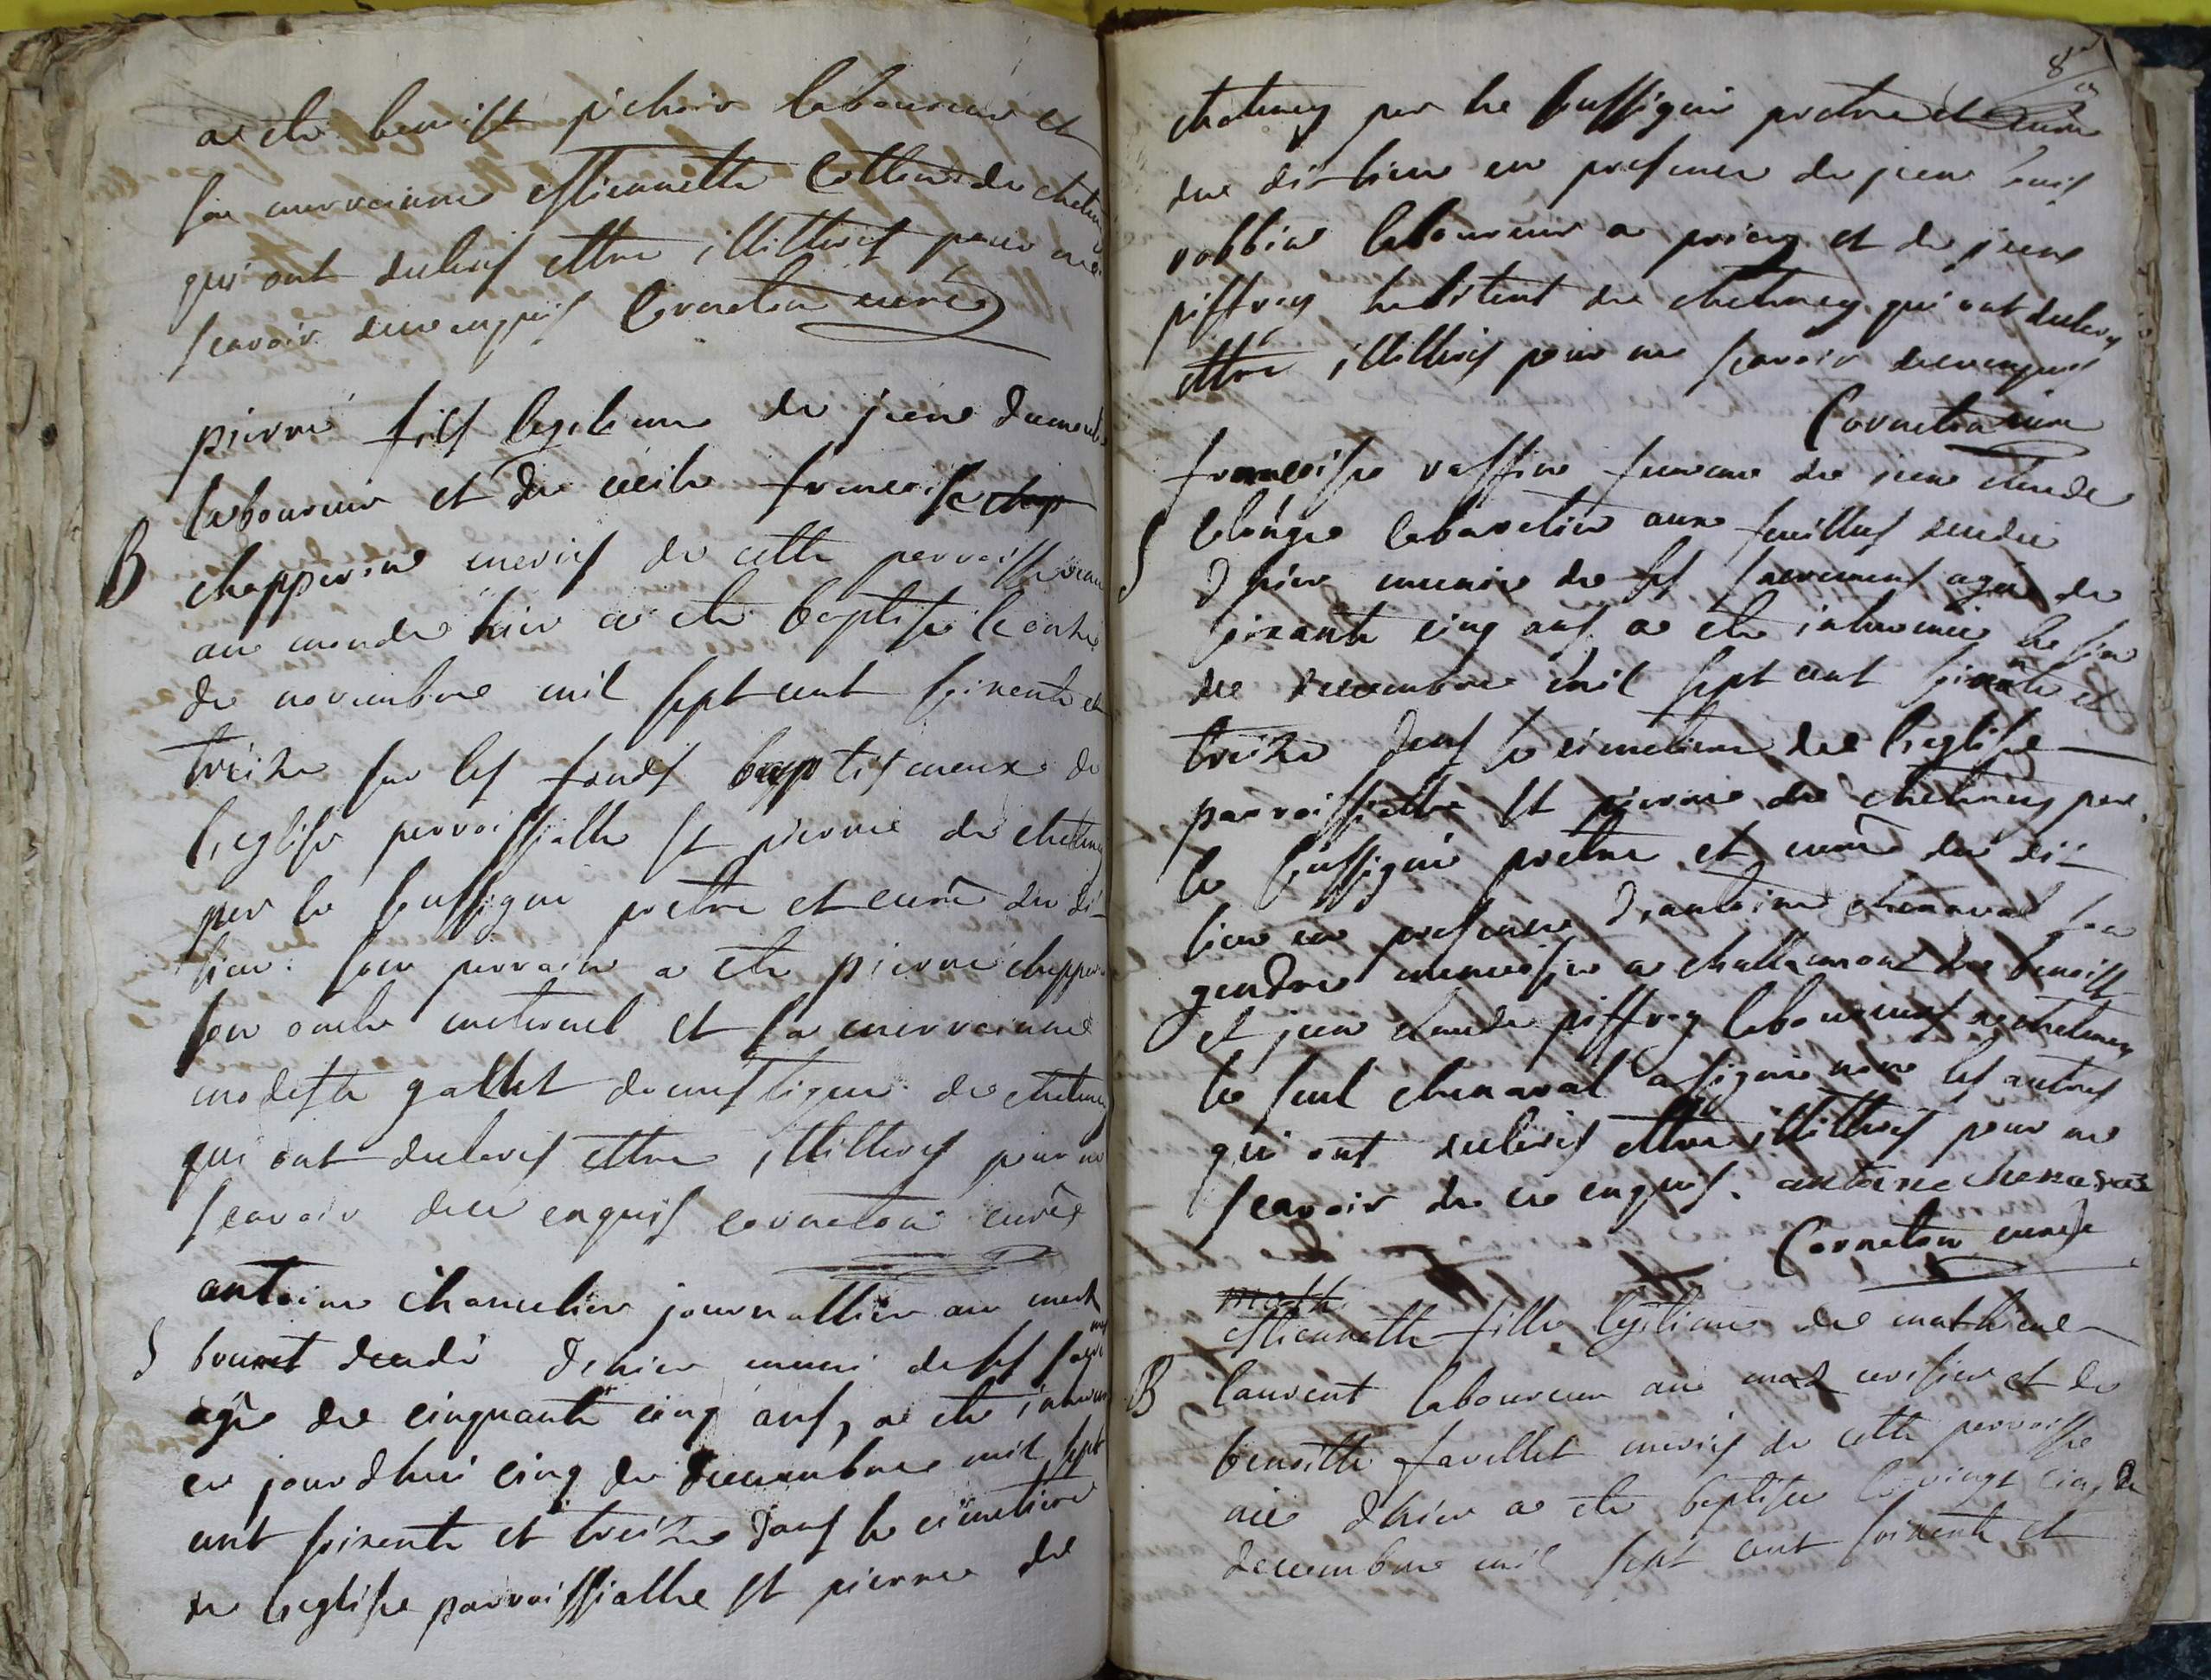 a ete benoist pichoir laboureur et
sa marrainne estiennette Cottin de chetenay
qui ont declares ettre illitteres pour ne
scavoir de ce enquis Corneton curé
pierre fils legitime de jean dumont
laboureur et de cecile francoise chap
B
chapperon maries de cette parroisse venu
au monde hier a ete baptise le onze
de novembre mil sept cent soixente et
treize sur les fonds baptismeaux de
l'eglise parroissialle st pierre de chetenay
par le soussigne pretre et curé du di-
lieu. son parrain a ete pierre chapperon
son oncle maternel et sa marrainne
modeste gallet domestique de chetenay
qui ont declares ettre illitteres pour ne
scavoir de ce enquis corneton curé
antoine chancelier journallier au
S
decedé d'hier muni de ses
agé de cinquante cinq ans, a ete inhumé
ce jourd'hui cinq de decembre mil sept
cent soixente et treize dans le cimetiere
de l'eglise parroissialle st pierre de
8
chatenay par le soussigné pretre et curé
du di-lieu en presence de jean louis
robbin laboureur a priay et de jean
piffray habitant de chetenay qui ont declares
ettre illitteres pour ne scavoir de ce enquis
Corneton curé
francoise vassine femme de jean claude
S
aux feuilles decedee
d'hier munie de ses sacremens agée de
soixante cinq ans a ete inhumée le six
de decembre mil sept cent soixante et
treize dans le cimetiere de l'eglise
parroissialle st pierre de chetenay par
le soussigné pretre et curé du di-
lieu en presence d'antoine chenaval son
gendre menuisier a challamont de benoist
et jean claude piffray laboureurs a chetenay
le seul chenaval a signé non les autres
qui ont declares ettre illitteres pour ne
scavoir de ce enquis. antoine chenaval
Corneton curé
math
estiennette fille legitime de mathieu
B
laurent laboureur au mas cerisier et de
benoitte favellet maries de cette parroisse
née d'hier a ete baptisee le vingt cinq de
decembre mil sept cent soixente et